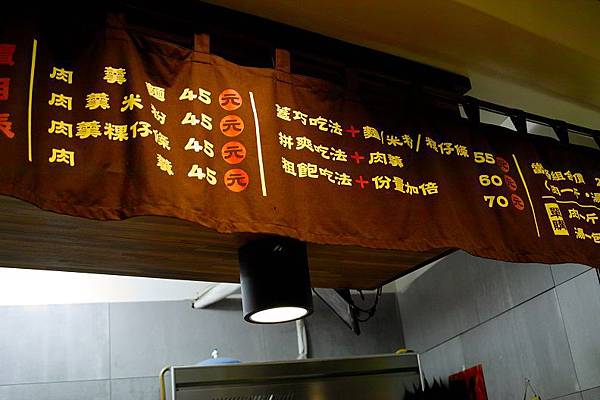 目表
肉羹麵 45元
肉羹米粉 45元
肉羹粿仔條 45元
肉羹 45元
吃法+麵/米粉/粿仔條 55元
拼爽吃法+肉羹 60元
粗飽吃法+份量加倍 70元
組合價
肉一斤
湯一包